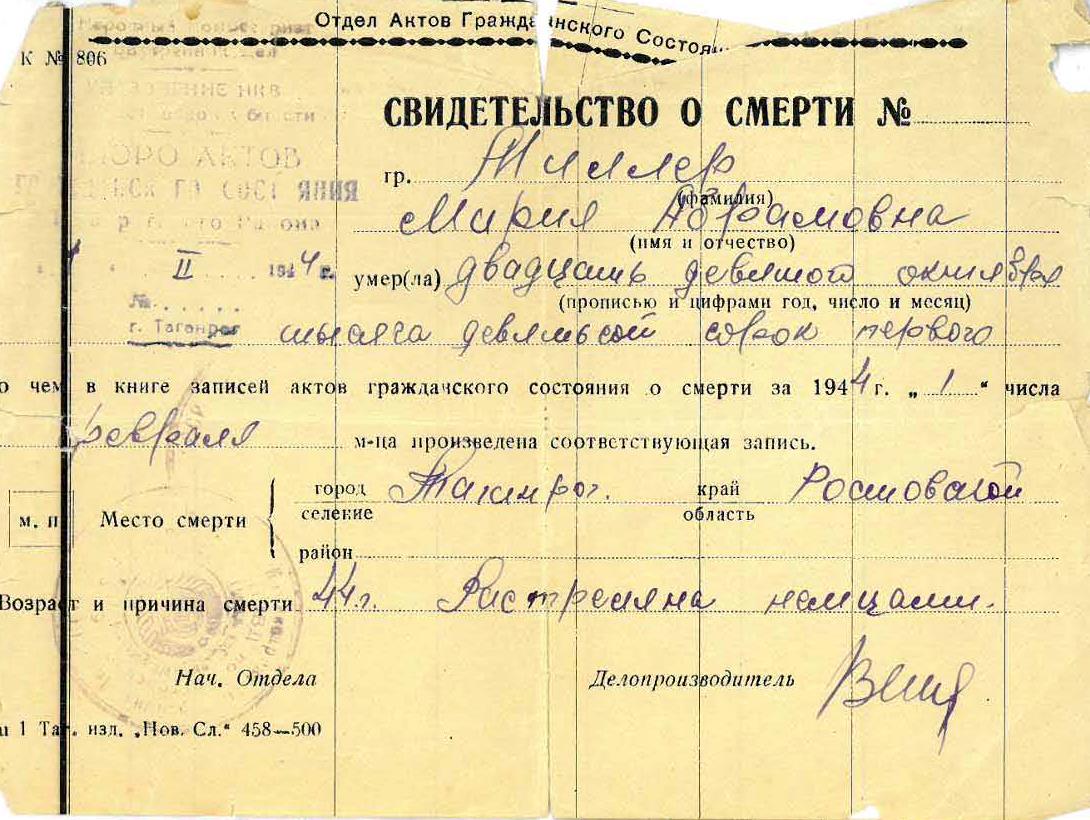 Отдел Актов Гражданского Состоян
К № 806
СВИДЕТЕЛЬСТВО О СМЕРТИ №
БЮРО АКТОВ
гр. Миллер
(фамилия)
Мария Абрамовна
(имя и отчество)
II 1944 г.
умер(ла) двадцать девятого октября
(прописью и цифрами год, число и месяц)
№
г. Таганрог
тысяча девятьсот сорок первого
о чем в книге записей актов гражданского состояния о смерти за 1944 г. „ 1 “ числа
февраля м-ца произведена соответствующая запись.
город Таганрог. край Ростовской
селение область
м. п
Место смерти
район
Возраст и причина смерти 44 г. Растреляна немцами.
Нач. Отдела Делопроизводитель
1 Таг. изд. „Нов. Сл.“ 458—500